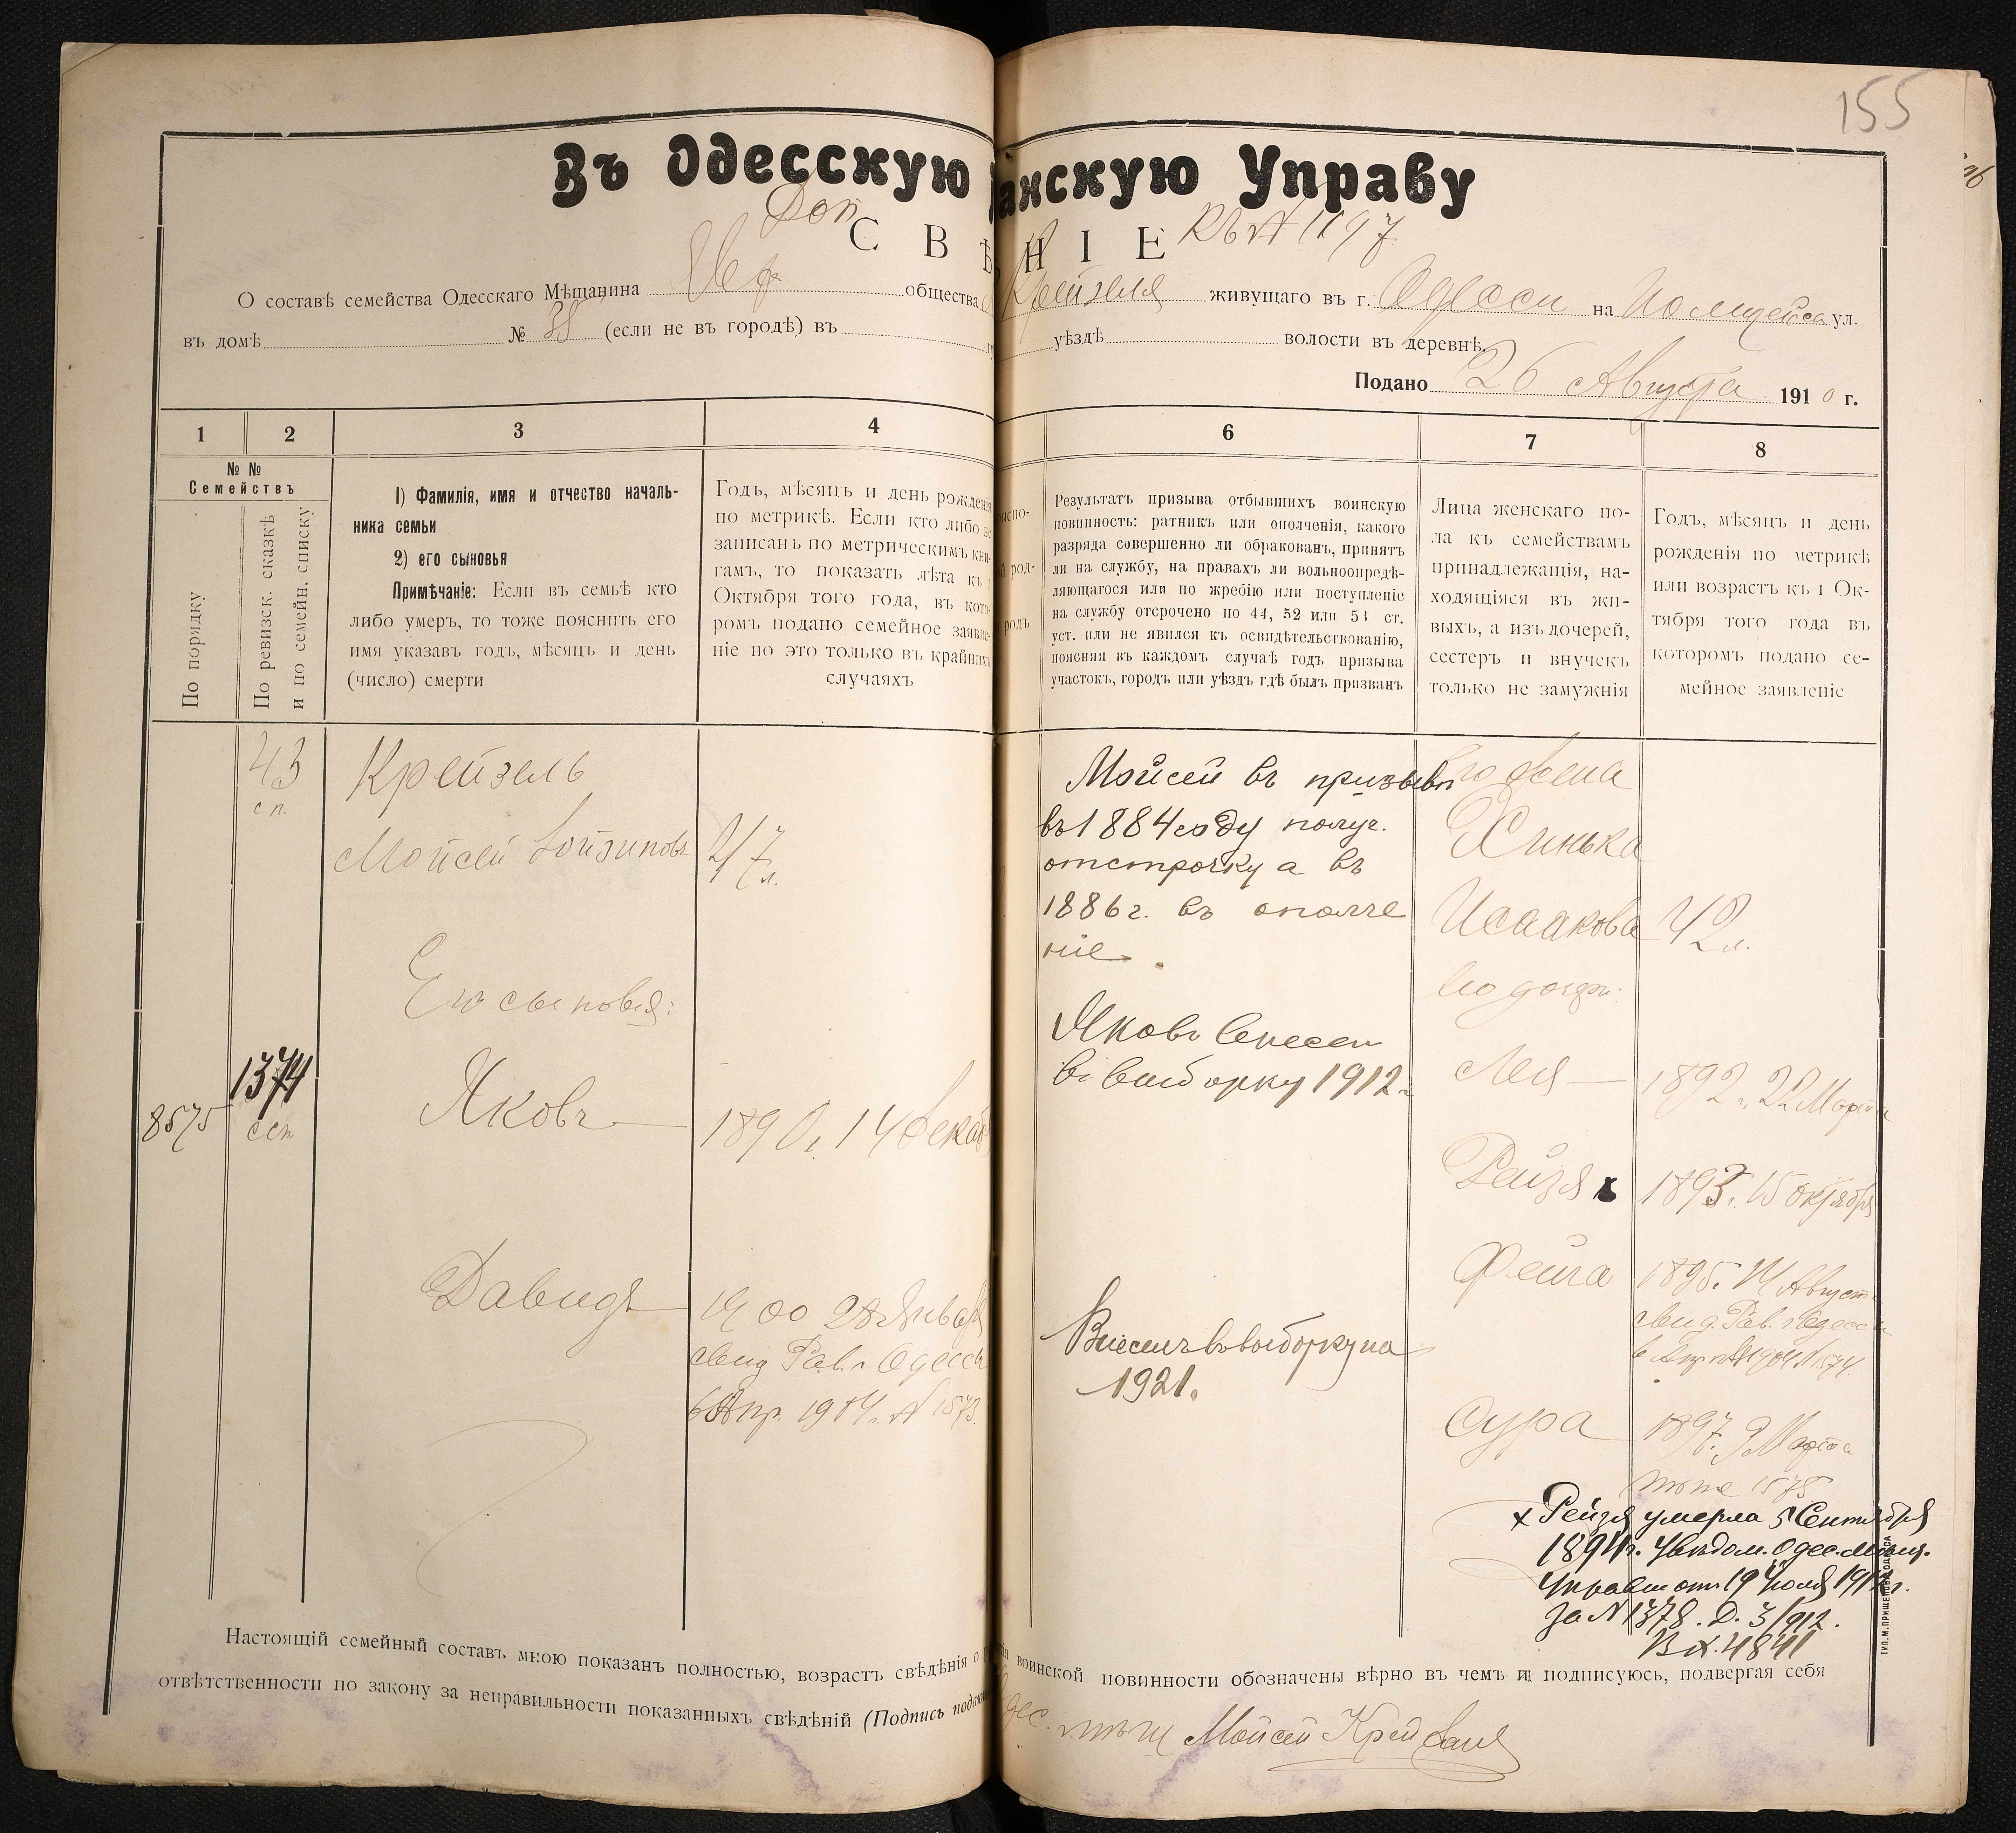 155
Въ Одесскую анскую Управу
Доп. къ № 1197
С В Ѣ Н І Е
О составѣ семейства Одесскаго Мѣщанина Евр. общества Крейзеля живущаго въ г. Одессѣ на ул.
въ домѣ № 38 (если не въ городѣ) въ уѣздѣ волости въ деревнѣ
Подано 26 Августа 1910 г.
1 2 3 4 6 7 8
№ №
Семействъ
По порядку
По ревизск. сказкѣ
и по семейн. списку
1) Фамилія, имя и отчество началь-
ника семьи
2) его сыновья
Примѣчаніе: Если въ семьѣ кто
либо умеръ, то тоже пояснить его
имя указавъ годъ, мѣсяцъ и день
(число) смерти
Годъ, мѣсяцъ и день рожденія
по метрикѣ. Если кто либо не
записанъ по метрическимъ кни-
гамъ, то показать лѣта къ 1
Октября того года, въ кото-
ромъ подано семейное заявле-
ніе но это только въ крайнихъ
случаяхъ
испо-
род-
родъ
Результатъ призыва отбывшихъ воинскую
повинность: ратникъ или ополченія, какого
разряда совершенно ли обракованъ, принятъ
ли на службу, на правахъ ли вольноопредѣ-
ляющагося или по жребію или поступленіе
на службу отсрочено по 44, 52 или 53 ст.
уст. или не явился къ освидѣтельствованію,
поясняя въ каждомъ случаѣ годъ призыва
участокъ, городъ или уѣздъ гдѣ былъ призванъ
Лица женскаго по-
ла къ семействамъ
принадлежащія, на-
ходящіяся въ жи-
выхъ, а изъ дочерей,
сестеръ и внучекъ
только не замужнія
Годъ, мѣсяцъ и день
рожденія по метрикѣ
или возрастъ къ 1 Ок-
тября того года въ
которомъ подано се-
мейное заявленіе
43
сп.
Крейзель
Мойсей 47
л.
Его сыновья:
8575
1374
сеп
Яковъ 1890 г. 14 Декаб
Давидъ 1900 28 Январ
свид. Рав. г. Одессы
6 Апр. 1904 г. № 1573.
Мойсей въ призывъ
въ 1884 году получ.
отстрочку а въ
1886 г. въ ополче
ніе.
Яковъ Внесен
въ выборку 1912 г.
Внесенъ въ выборку на
1921.
Его жена
Хинька
Исаакова 42 л.
Его дочери:
Лея 1892 г. 22 Марта
Рейзя x 1893 г. 15 октября
Фейга 1895 г. 14 Август
свид. Рав. г. Одессы
6 Апр. 1904 № 1574.
Сура 1897 г. 9 Марта
тоже 1575
x Рейзя умерла 5 Сентября
1894 г. Увѣдом. Одес. Мѣщ.
Управы от 19 Іюля 1912 г.
за № 1378. Д. 3/912.
Вх. 4841
Настоящій семейный составъ мною показанъ полностью, возрастъ свѣдѣнія о воинской повинности обозначены вѣрно въ чемъ и подписуюсь, подвергая себя
отвѣтственности по закону за неправильности показанныхъ свѣдѣній (Подпись
Одес. мѣщ Мойсей
ТИП. М. ПРИЩЕПОВА ОДЕССА